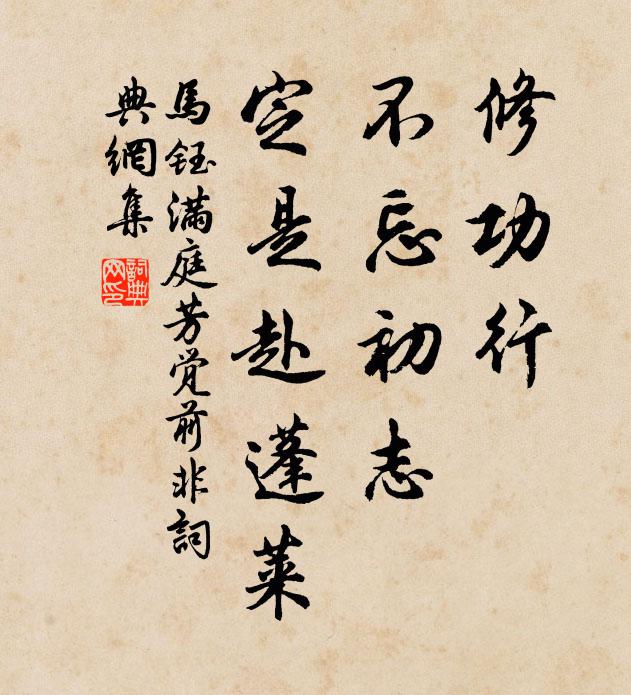 修功行
不忘初志
定是赴蓬莱
馬鈺满庭芳觉前非詞
典網集
詞典
网印